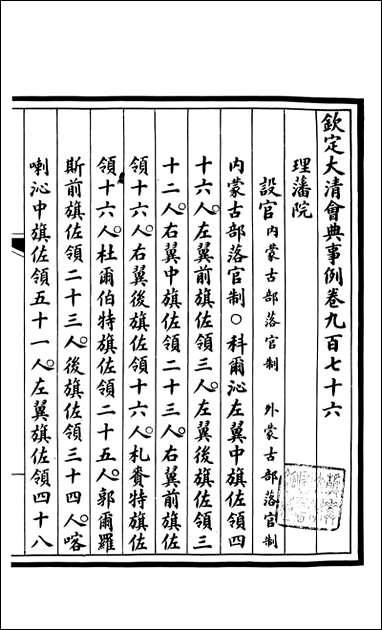 欽定大清會典事例卷九百七十六
理藩院
設官 内蒙古部落官制 外蒙古部落官制
内蒙古部落官制〇科爾沁左翼中旗佐領四
十六人左翼前旗佐領三人左翼後旗佐領三
十二人右翼中旗佐領二十三人右翼前旗佐
領十六人右翼後旗佐領十六人札賚特旗佐
領十六人杜爾伯特旗佐領二十五人郭爾羅
斯前旗佐領二十三人後旗佐領三十四人喀
喇沁中旗佐領五十一人左翼旗佐領四十八